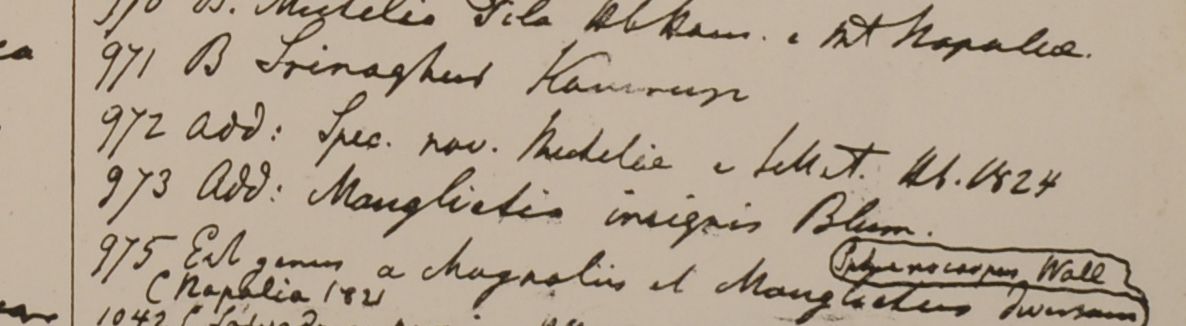 970 B. Michelia Hb Ham. e Mt Napalia.
971 B Srinaghur Kamrup
972 Add: Spec. nov. Micheliae e Hb. 1824
973 Add: Manglietia insignis Blum.
975 Est genus a Magnoliis et Manglietiis diversum Wall
( Napalia 1821
1042